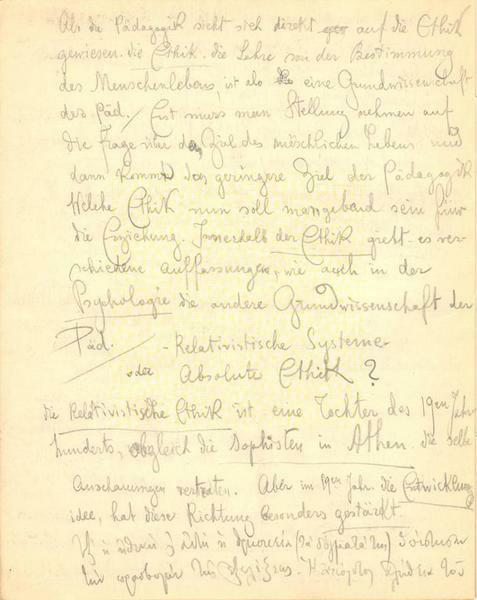 Also die Pädagogik sieht sich direkt auf die Ethik
gewiesen. die Ethik. die Lehre von der Bestimmung
des Menschenlebens, ist also eine Grundwissenschaft
der Päd. Erst muss man Stellung nehmen auf
die Frage über das Ziel des menschlichen Lebens und
dann kommt das geringere Ziel der Pädagogik
Welche Ethik nun soll massgebend sein für
die Erziehung. Innerhalb der Ethik giebt es ver-
schiedene Auffassungen, wie auch in der
Psychologie die andere Grundwissenschaft der
Päd. - Relativistische Systeme
oder Absolute Ethik?
die Relativistische Ethik ist eine Tochter des 19en Jahr
hunderts, obgleich die Sophisten in Athen die selbe
Anschauungen vertraten. Aber im 19en Jahr. die Entwicklung
idee, hat diese Richtung besonders gestärkt.